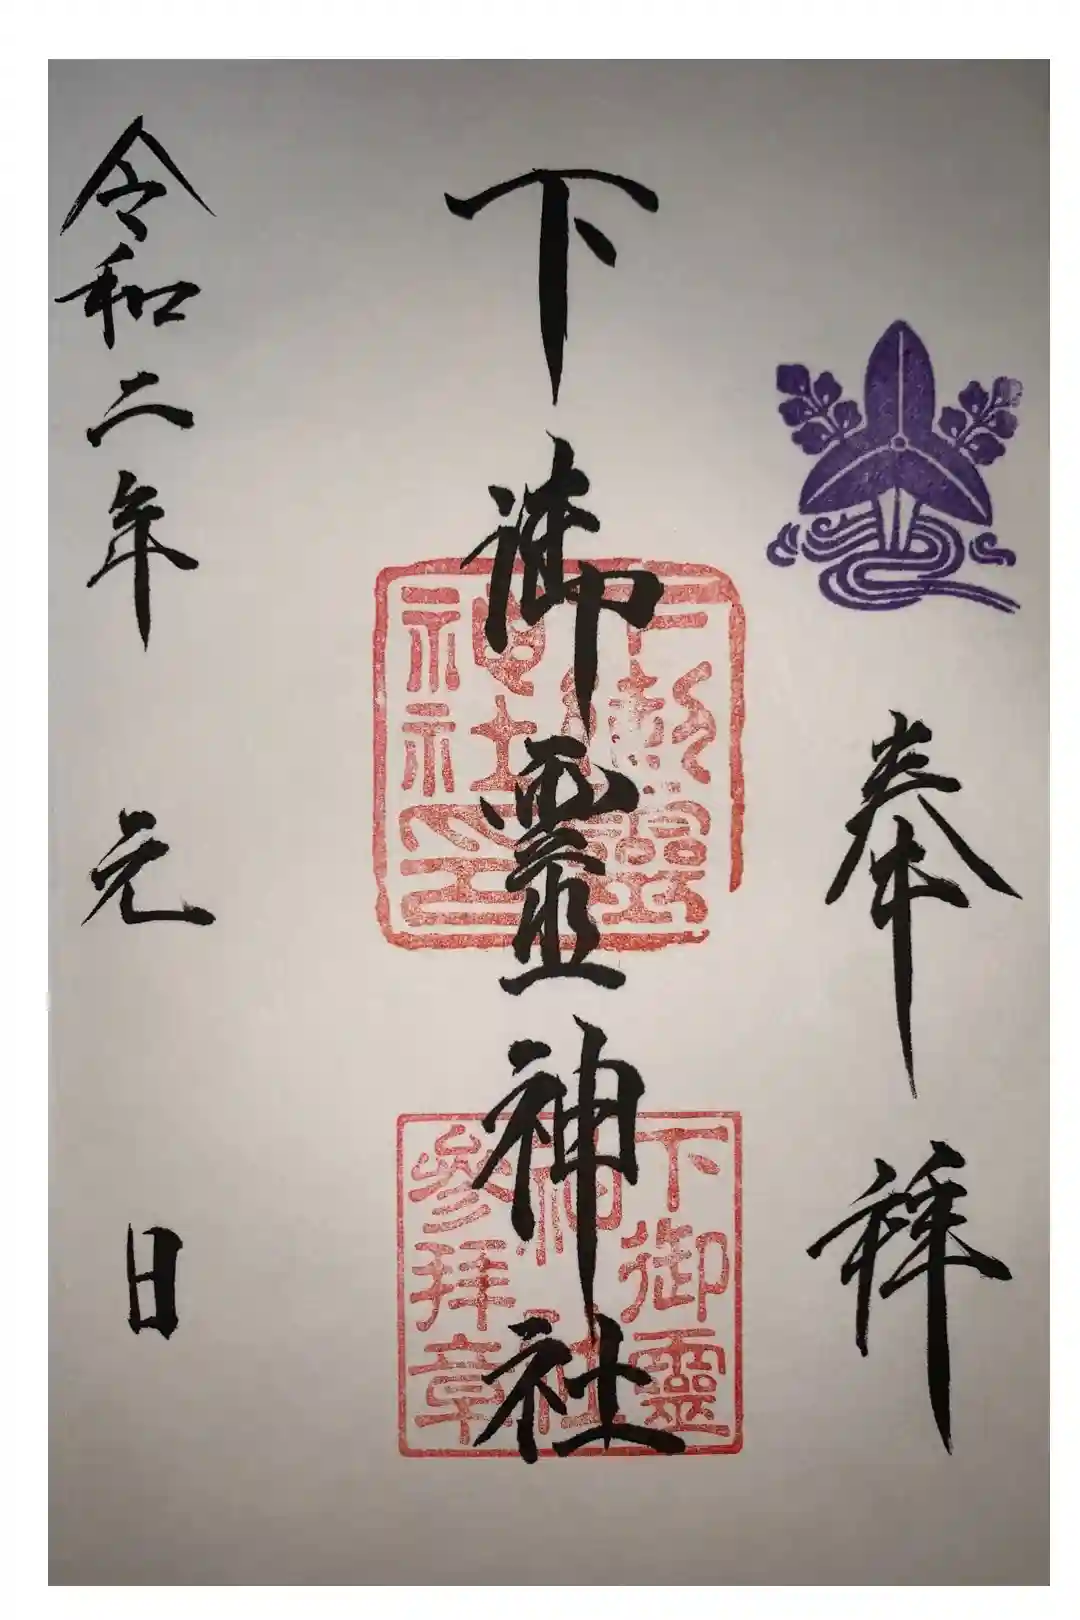 奉拝
下御靈神社
下御靈神社印
下御靈神社參拝章
令和二年元日